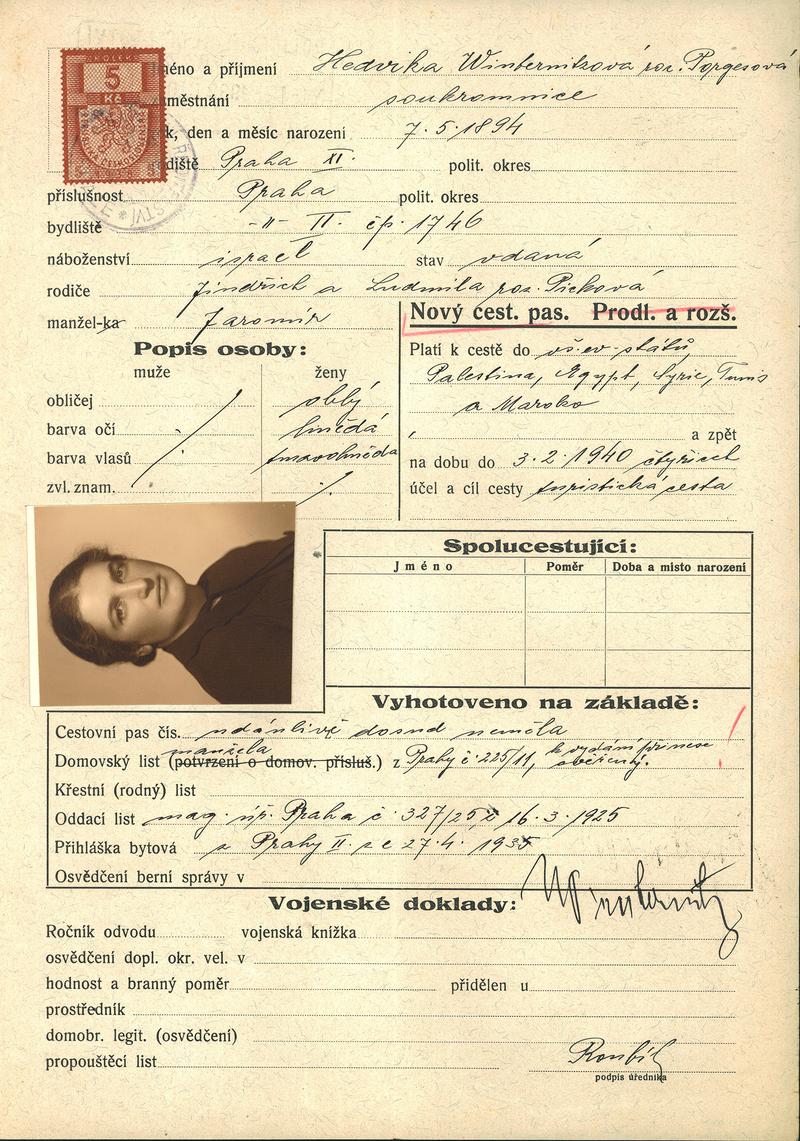 KOLEK
5
Kč
Jméno a příjmení Hedvika Winternitzová roz. Porgesová
zaměstnání soukromnice
rok, den a měsíc narození 7.5.1894
rodiště Praha XI. polit. okres
příslušnost Praha polit. okres
bydliště -"- II. čp. 1746
náboženství israel stav vdaná
rodiče Jindřich a Ludmila roz. Picková
manžel-ka Jaromír
Nový cest. pas. Prodl. a rozš.
Popis osoby:
muže ženy
obličej oblý
barva očí hnědá
barva vlasů tmavohnědá
zvl. znam. /.
Platí k cestě do vš. ev. států,
Palestina, Egypt, Syrie, Tunis
a Maroko
a zpět
na dobu do 3.2.1940 čtyřicet
účel a cíl cesty turistická cesta
Spolucestující:
Jméno Poměr Doba a místo narození
Vyhotoveno na základě:
Cestovní pas čís. udánlivě dosud neměla
manžela
Domovský list (potvrzení o domov. přísluš.) z Prahy č. 225/11, k vydání přinese
ověřený.
Křestní (rodný) list
Oddací list mag. úř. Praha č. 327/25 z 16.3.1925
Přihláška bytová z Prahy II. ze 27.4.1935
Osvědčení berní správy v
Winternitz
Vojenské doklady:
Ročník odvodu vojenská knížka
osvědčení dopl. okr. vel. v
hodnost a branný poměr přidělen u
prostředník
domobr. legit. (osvědčení)
propouštěcí list
podpis úředníka